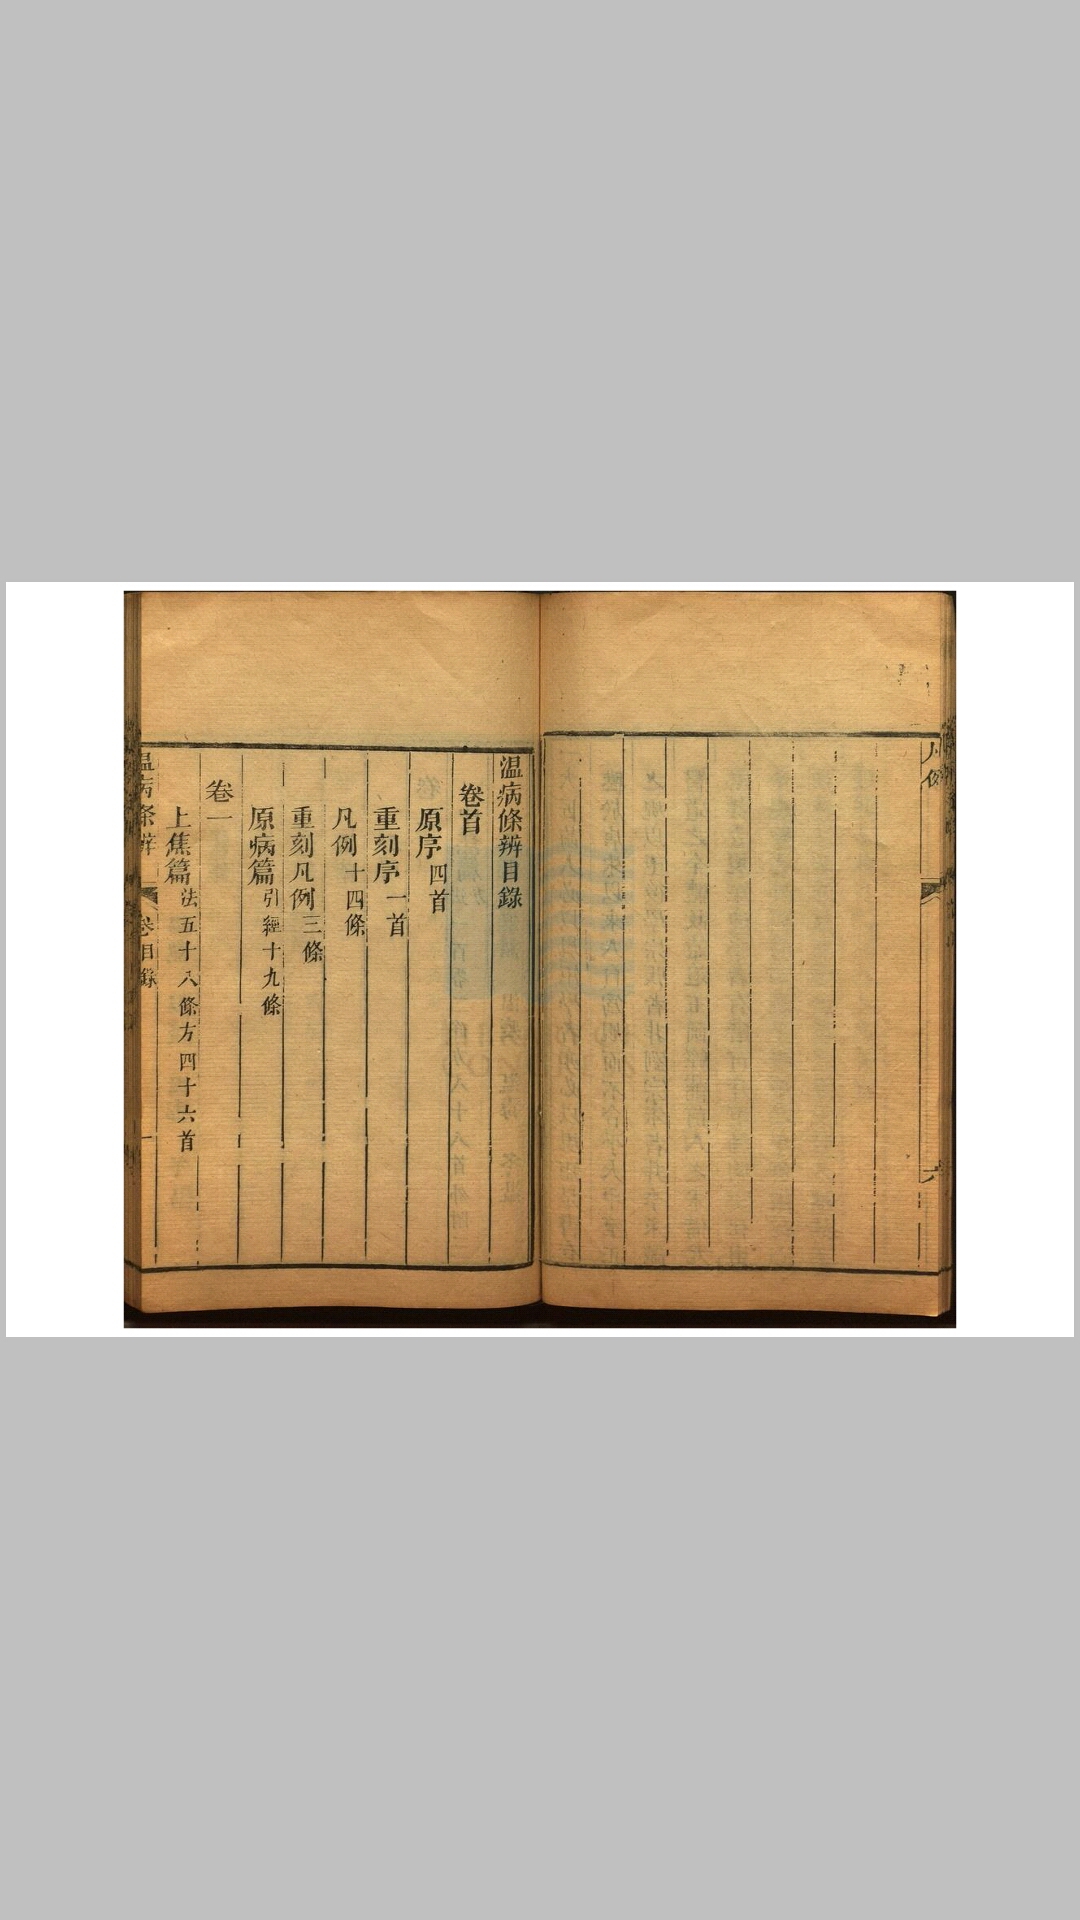 凡例
六
溫病條辨目錄
卷首
原序四首
重刻序一首
凡例十四條
重刻凡例三條
原病篇引經十九條
卷一
上焦篇法五十八條方四十六首
溫病條辨 卷目錄 一